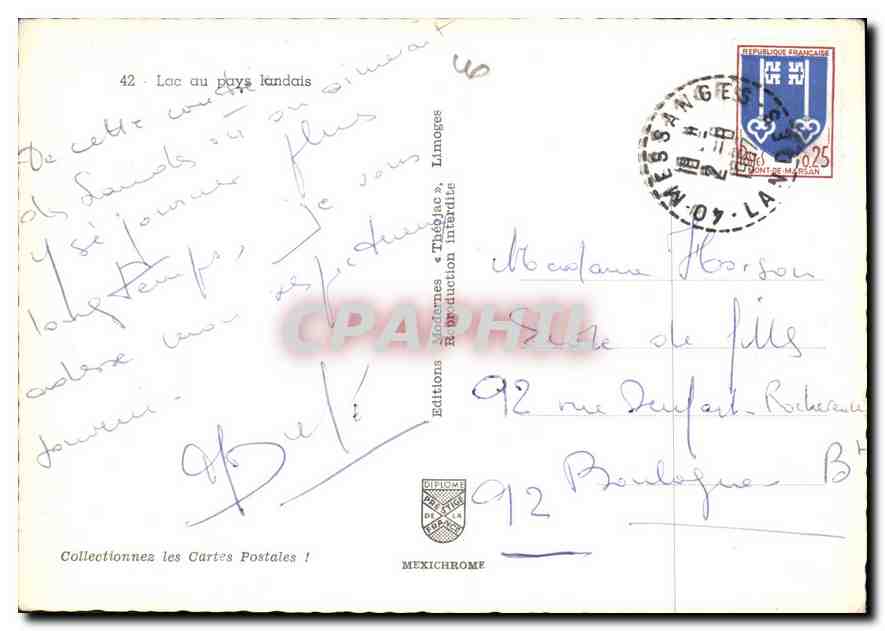 42 - Lac au pays landais
De cette contrée
des Landes où on aimerait
y séjourner plus
longtemps, je vous
adresse mon respectueux
souvenir.
Editions Modernes « Théojac », Limoges
Reproduction interdite
REPUBLIQUE FRANÇAISE
0,25
MONT-DE-MARSAN
MESSANGES
40 · LANDES
Madame
de filles
92 rue Denfert-Rochereau
92 Boulogne Bt
DIPLOME
PRESTIGE
DE LA
FRANCE
MEXICHROME
Collectionnez les Cartes Postales !
CPAPHIL